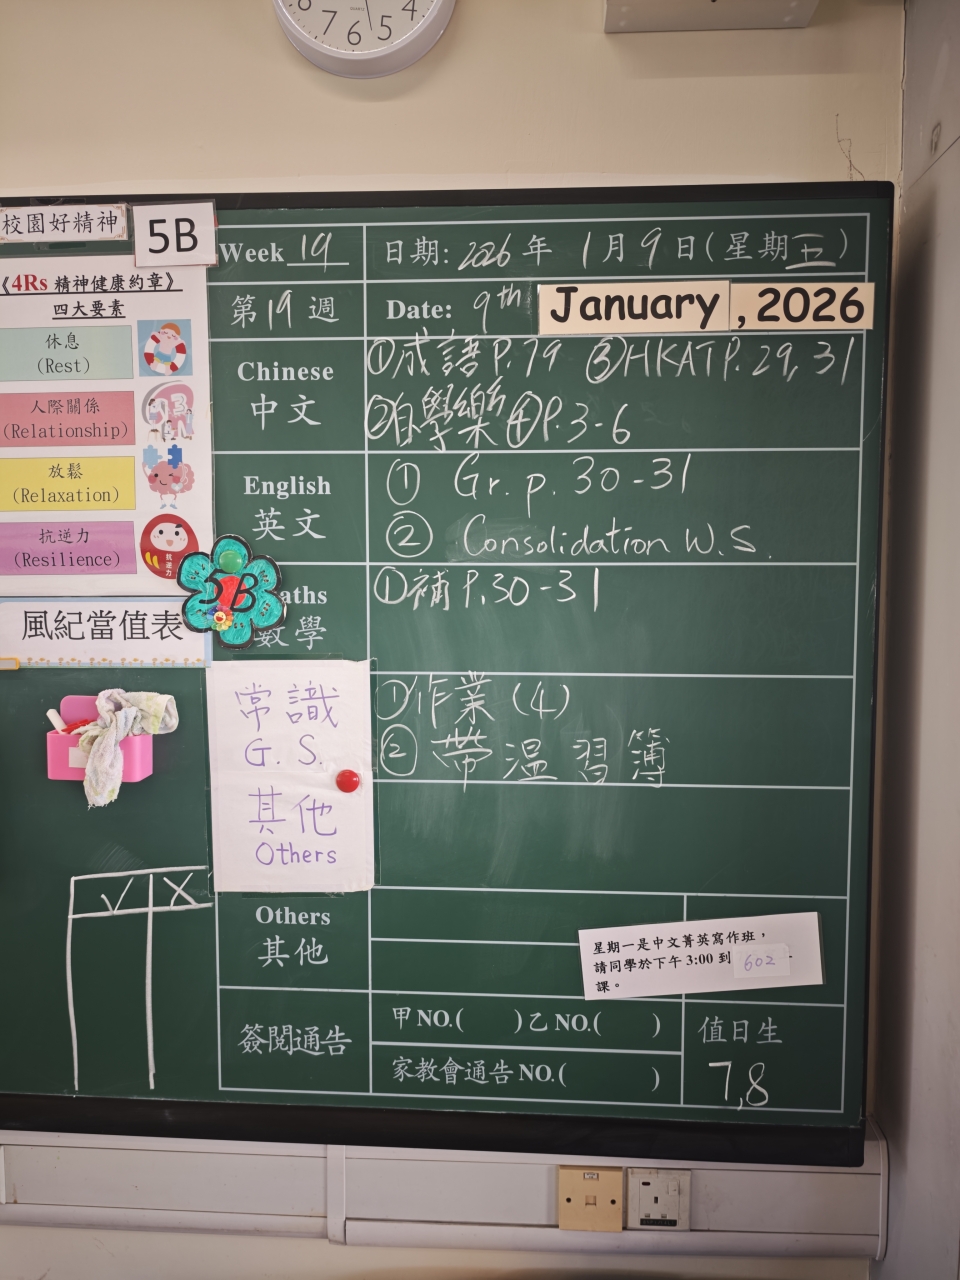 8 7 6 5 4
QUARTZ
校園好精神
5B
《4Rs 精神健康約章》
四大要素
休息
(Rest)
人際關係
(Relationship)
放鬆
(Relaxation)
抗逆力
(Resilience)
抗逆力
5B
風紀當值表
✓ ✗
Week 19
日期: 2026 年 1 月 9 日 (星期五)
第 19 週
Date: 9th January , 2026
Chinese
中文
①成語 P.79 ③HKAT P.29, 31
②自學樂 ④P.3-6
English
英文
① Gr. p. 30-31
② Consolidation W.S.
aths
數學
①補 P.30-31
常識
G.S.
①作業 (4)
②帶溫習簿
其他
Others
Others
其他
星期一是中文菁英寫作班，
請同學於下午 3:00 到 602
課。
簽閱通告
甲 NO.( ) 乙 NO.( )
家教會通告 NO.( )
值日生
7,8